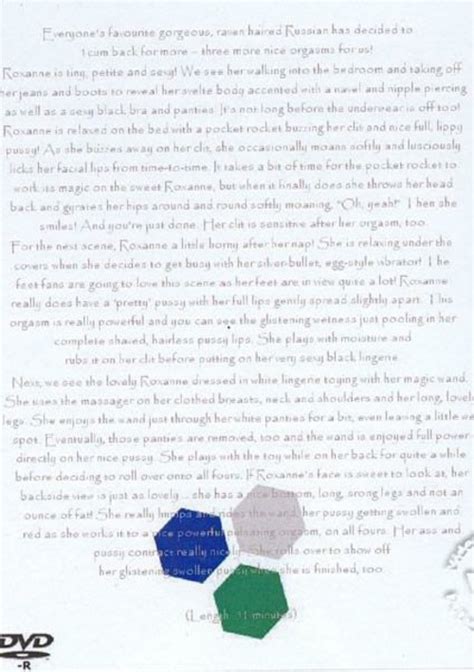 Everyone's favourite gorgeous, raven haired Russian has decided to
cum back for more – three more nice orgasms for us!
Roxanne is tiny, petite and sexy! We see her walking into the bedroom and taking off
her jeans and boots to reveal her svelte body accented with a navel and nipple piercing
as well as a sexy black bra and panties. It's not long before the underwear is off too!
Roxanne is relaxed on the bed with a pocket rocket buzzing her clit and nice full, lippy
pussy! As she buzzes away on her clit, she occasionally moans softly and lusciously
licks her facial lips from time-to-time. It takes a bit of time for the pocket rocket to
work its magic on the sweet Roxanne, but when it finally does she throws her head
back and gyrates her hips around and round softly moaning, "Oh, yeah!" Then she
smiles! And you're just done. Her clit is sensitive after her orgasm, too.
For the next scene, Roxanne a little horny after her nap! She is relaxing under the
covers when she decides to get busy with her silver-bullet, egg-style vibrator! The
feet fans are going to love this scene as her feet are in view quite a lot! Roxanne
really does have a 'pretty' pussy with her full lips gently spread slightly apart. This
orgasm is really powerful and you can see the glistening wetness just pooling in her
complete shaved, hairless pussy lips. She plays with moisture and
rubs it on her clit before putting on her very sexy black lingerie
Next, we see the lovely Roxanne dressed in white lingerie toying with her magic wand.
She uses the massager on her clothed breasts, neck and shoulders and her long, lovely
legs. She enjoys the wand just through her white panties for a bit, even leaving a little wet
spot. Eventually, those panties are removed, too and the wand is enjoyed full power
directly on her nice pussy. She plays with the toy while on her back for quite a while
before deciding to roll over onto all fours. If Roxanne's face is sweet to look at, her
backside view is just as lovely ... she has a nice bottom, long, strong legs and not an
ounce of fat! She really humps and rides the wand, her pussy getting swollen and
red as she works it to a nice powerful pulsating orgasm, on all fours. Her ass and
pussy contract really nicely. She rolls over to show off
her glistening swollen pussy when she is finished, too.
(Length: 31 minutes)
DVD
-R